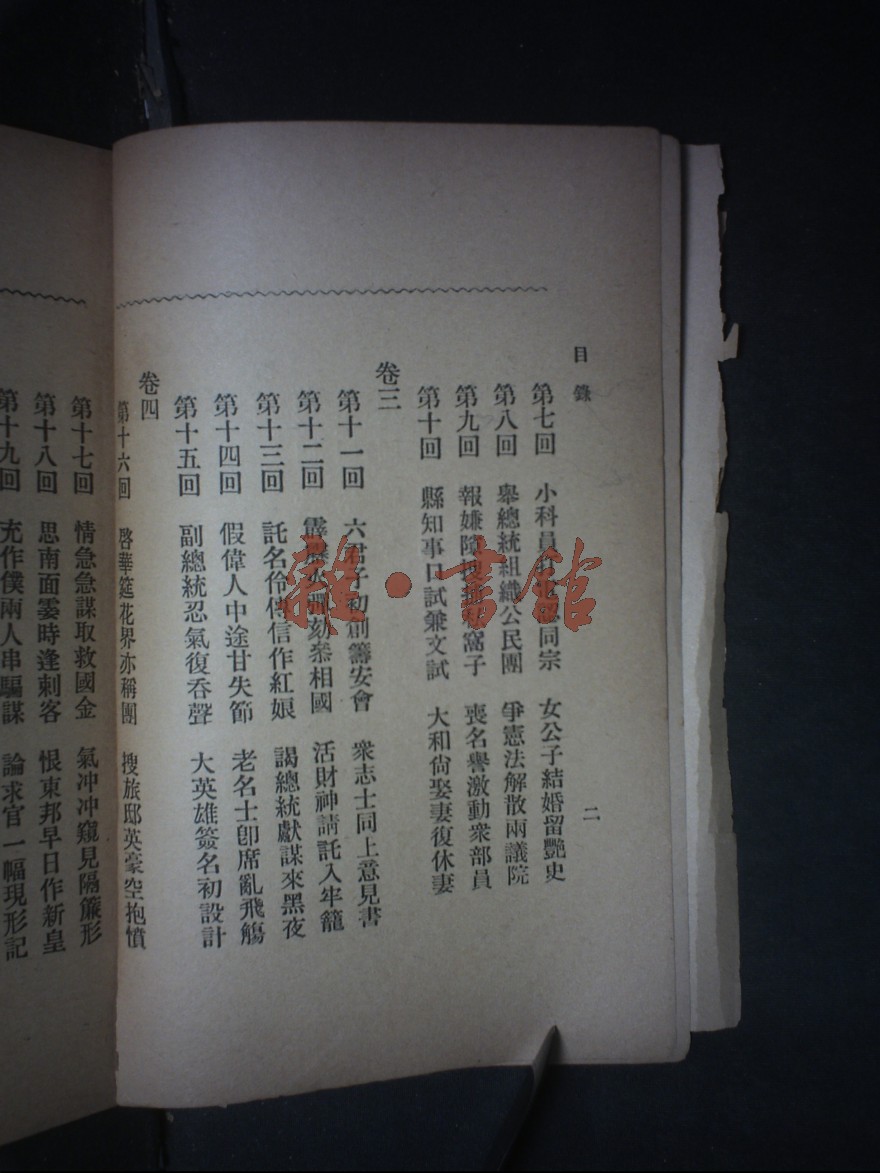 目錄
二
第七回 小科員 同宗 女公子結婚留艷史
第八回 舉總統組織公民團 爭憲法解散兩議院
第九回 報嫌隙 窩子 喪名譽激動衆部員
第十回 縣知事口試兼文試 大和尙娶妻復休妻
卷三
第十一回 六君子初創籌安會 衆志士同上意見書
第十二回 霹靂 刻 相國 活財神請託入牢籠
第十三回 託名伶傳信作紅娘 謁總統獻謀來黑夜
第十四回 假偉人中途甘失節 老名士卽席亂飛觴
第十五回 副總統忍氣復吞聲 大英雄簽名初設計
卷四
第十六回 啓華筵花界亦稱團 搜旅邸英豪空抱憤
第十七回 情急急謀取救國金 氣冲冲窺見隔簾形
第十八回 思南面霎時逢刺客 恨東邦早日作新皇
第十九回 充作僕兩人串騙謀 論求官一幅現形記
雜·書館